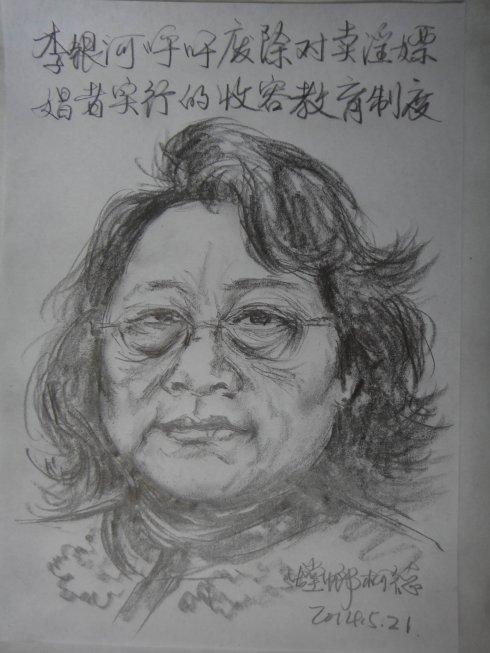 李银河呼吁废除对卖淫嫖
娼者实行的收容教育制度
2014.5.21.